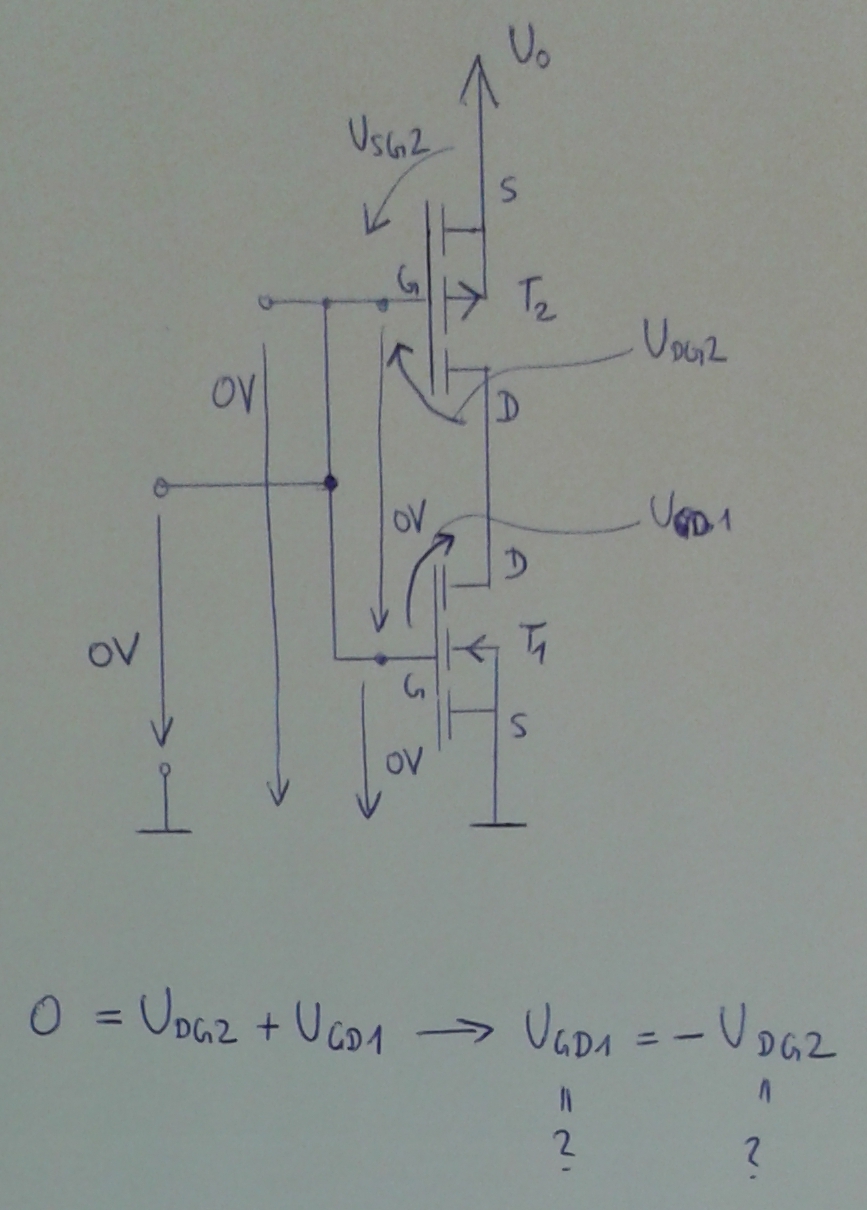 U₀
U_SG2
S
G
T₂
0V
U_DG2
D
0V
U_GD1
D
0V
T₁
G
S
0V
0 = U_DG2 + U_GD1 → U_GD1 = - U_DG2
= =
? ?